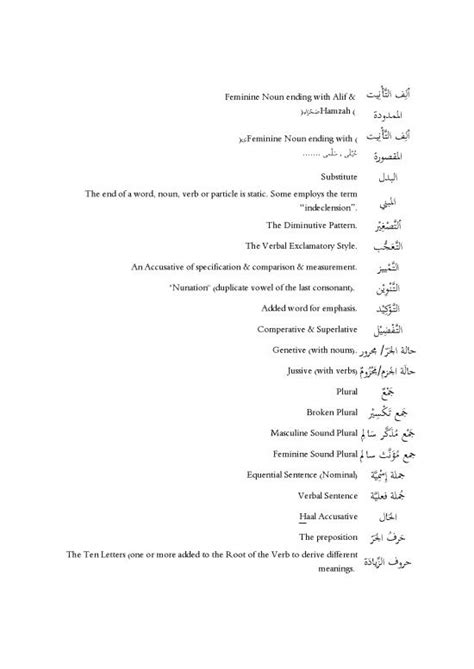 Feminine Noun ending with Alif & ألِف التَّأْنِيت
(صَحْرَاء)Hamzah ( الممدودة
(ى)Feminine Noun ending with ( ألِف التَّأْنِيت
....... حُبْلَى ، سَلْمى المقصورة
Substitute البدل
The end of a word, noun, verb or particle is static. Some employs the term
"indeclension". المبني
The Diminutive Pattern. التَّصْغِيْر
The Verbal Exclamatory Style. التَّعَجُّب
An Accusative of specification & comparison & measurement. التَّمْيِيز
"Nunation" (duplicate vowel of the last consonant). التَّنْوِيْن
Added word for emphasis. التَّوْكِيْد
Comperative & Superlative التَّفْضِيْل
Genetive (with nouns). حالة الجَرّ/ مجرور
Jussive (with verbs) حالَة الجَزم/مَجْزُومٌ
Plural جَمْعٌ
Broken Plural جَمع تَكْسِيْر
Masculine Sound Plural جَمْع مُذَكَّر سَالِم
Feminine Sound Plural جمع مُؤَنَّث سالِم
Equential Sentence (Nominal) جملة إِسْمِيَّة
Verbal Sentence جُملة فعليَّة
Haal Accusative الحَال
The preposition حَرفُ الجَرّ
The Ten Letters (one or more added to the Root of the Verb to derive different
meanings. حروف الزِّيادَة